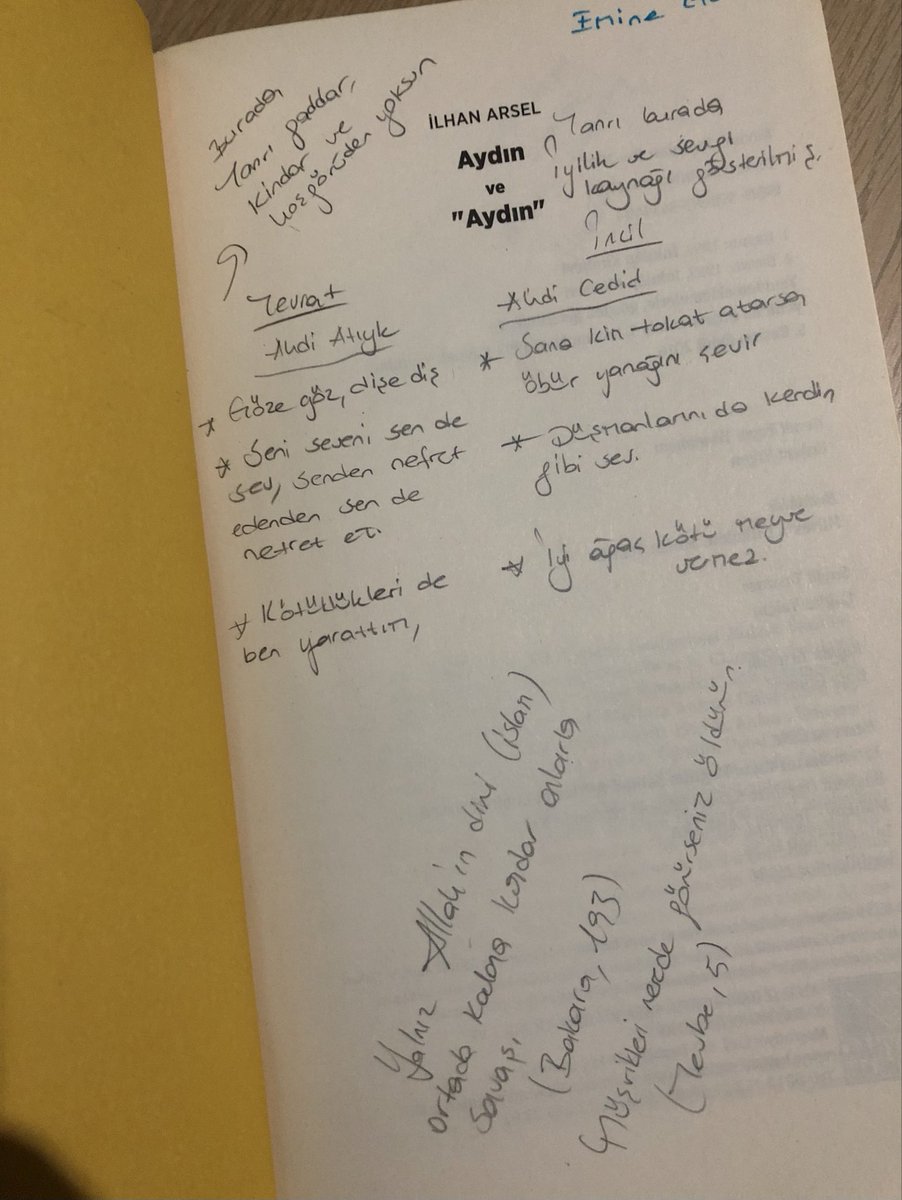 Emine
İLHAN ARSEL
Aydın
ve
"Aydın"
Burada
Tanrı gaddar,
kindar ve
hoşgörüden yoksun
Tanrı burada
iyilik ve sevgi
kaynağı gösterilmiş.
Tevrat
Ahdi Atiyk
* Göze göz, dişe diş
* Seni seveni sen de
sev, senden nefret
edenden sen de
nefret et.
* Kötülükleri de
ben yarattım,
İncil
Ahdi Cedid
* Sana kin tokat atarsa
öbür yanağını çevir
* Düşmanlarını da kendin
gibi sev.
* İyi ağaç kötü meyve
vermez.
Yalnız Allah'ın dini (İslam)
ortada kalana kadar onlarla
savaş.
(Bakara, 193)
Müşrikleri nerde görürseniz öldürün.
(Tevbe, 5)